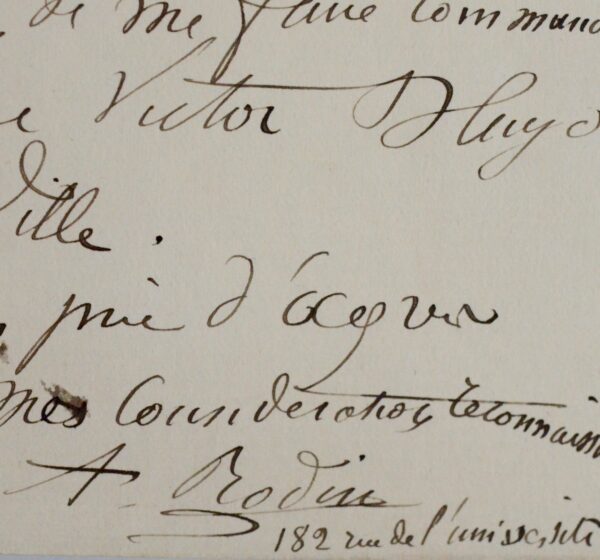 de me faire command
Victor Hugo
Ville.
prie d'
mes Considerations reconnaiss
A. Rodin
182 rue de l'université